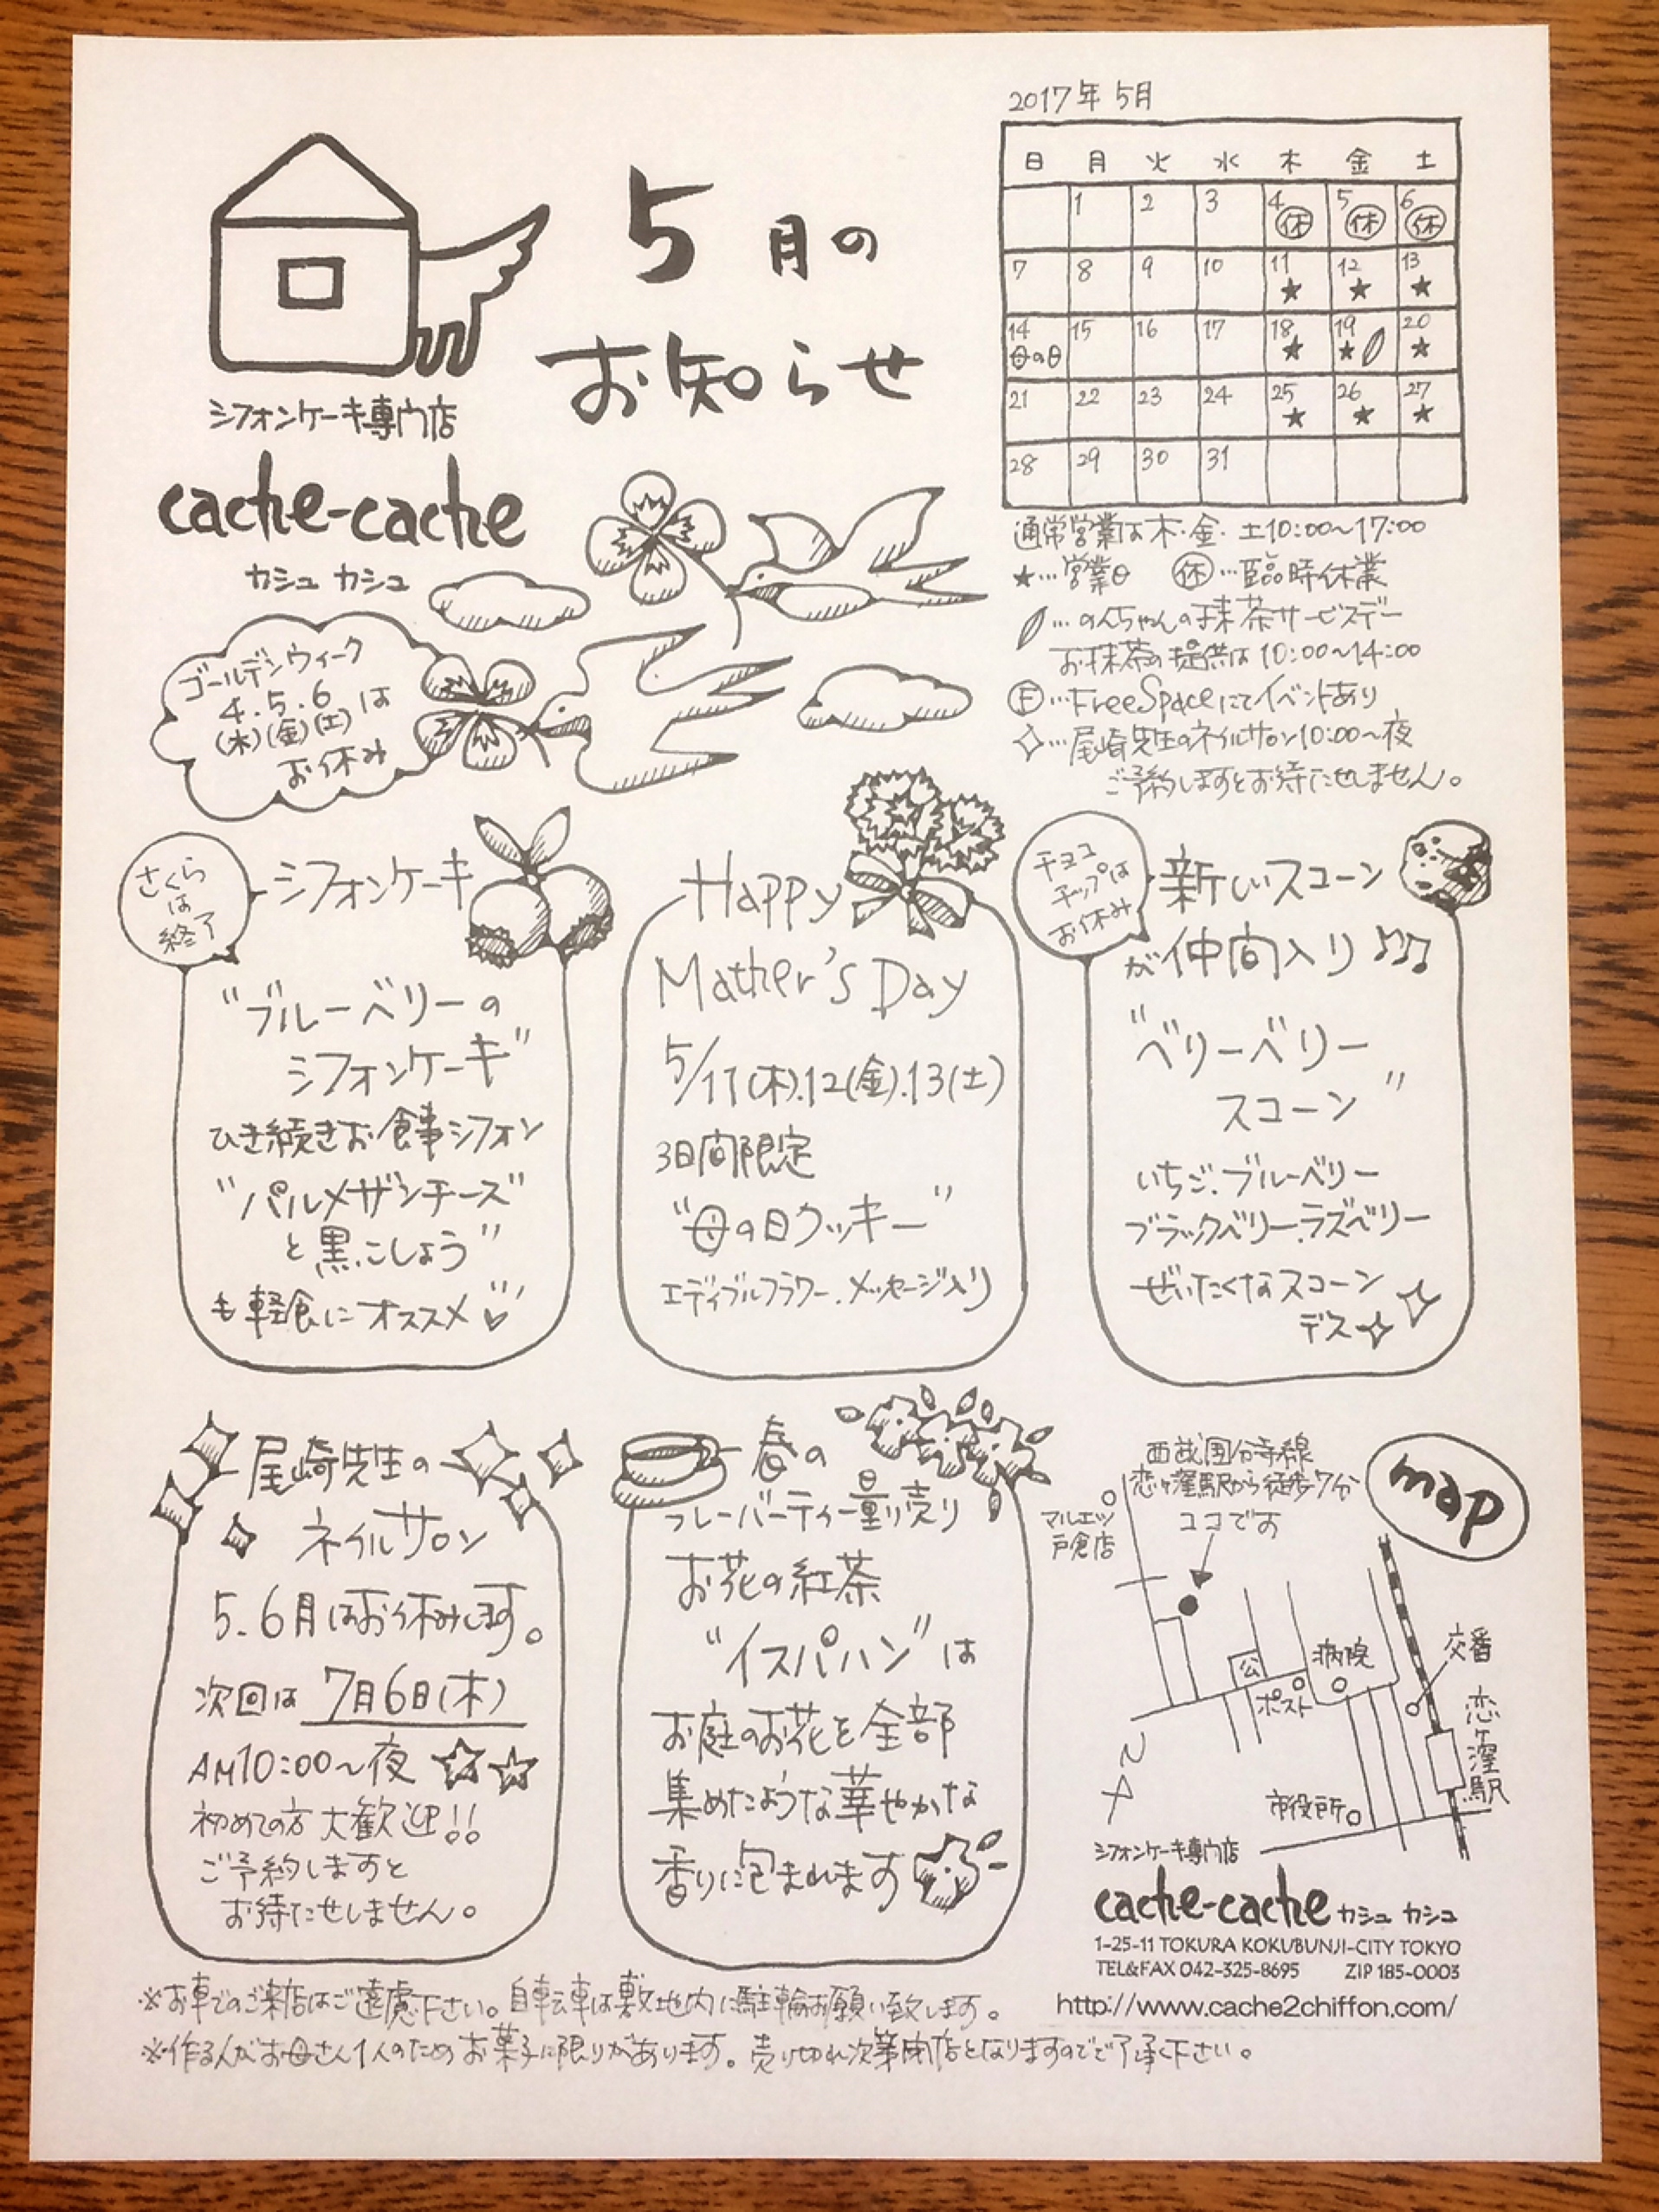 5月の
お知らせ
シフォンケーキ専門店
cache-cache
カシュ カシュ
2017年 5月
日 月 火 水 木 金 土
1 2 3 4 休 5 休 6 休
7 8 9 10 11 ★ 12 ★ 13 ★
14 母の日 15 16 17 18 ★ 19 ★ 20 ★
21 22 23 24 25 ★ 26 ★ 27 ★
28 29 30 31
通常営業は木・金・土10:00〜17:00
★…営業日 休…臨時休業
…のんちゃんの抹茶サービスデー
お抹茶の提供は10:00〜14:00
F…FreeSpaceにてイベントあり
✧…尾崎先生のネイルサロン10:00〜夜
ご予約しますとお待たせしません。
ゴールデンウィーク
4.5.6は
(木)(金)(土)
お休み
さくら
は
終了
シフォンケーキ
"ブルーベリーの
シフォンケーキ"
ひき続きお食事シフォン
"パルメザンチーズ
と黒こしょう"
も軽食にオススメ♡
Happy
Mather's Day
5/11(木).12(金).13(土)
3日間限定
"母の日クッキー"
エディブルフラワー.メッセージ入り
チョコ
チップは
お休み
新しいスコーン
が仲間入り♪♫
"ベリーベリー
スコーン"
いちご.ブルーベリー
ブラックベリー.ラズベリー
ぜいたくなスコーン
デス✧
尾崎先生の
ネイルサロン
5.6月はお休みします。
次回は 7月6日(木)
AM10:00〜夜 ☆☆
初めての方大歓迎!!
ご予約しますと
お待たせしません。
春の
フレーバーティー量り売り
お花の紅茶
"イスパハン"は
お庭のお花を全部
集めたような華やかな
香りに包まれます
map
西武国分寺線
恋ヶ窪駅から徒歩7分
ココです
マルエツ
戸倉店
公
ポスト
病院
交番
恋ヶ窪駅
市役所
N
シフォンケーキ専門店
cache-cache カシュ カシュ
1-25-11 TOKURA KOKUBUNJI-CITY TOKYO
TEL&FAX 042-325-8695 ZIP 185-0003
http://www.cache2chiffon.com/
※お車でのご来店はご遠慮下さい。自転車は敷地内に駐輪お願い致します。
※作る人がお母さん1人のためお菓子に限りがあります。売り切れ次第閉店となりますのでご了承下さい。